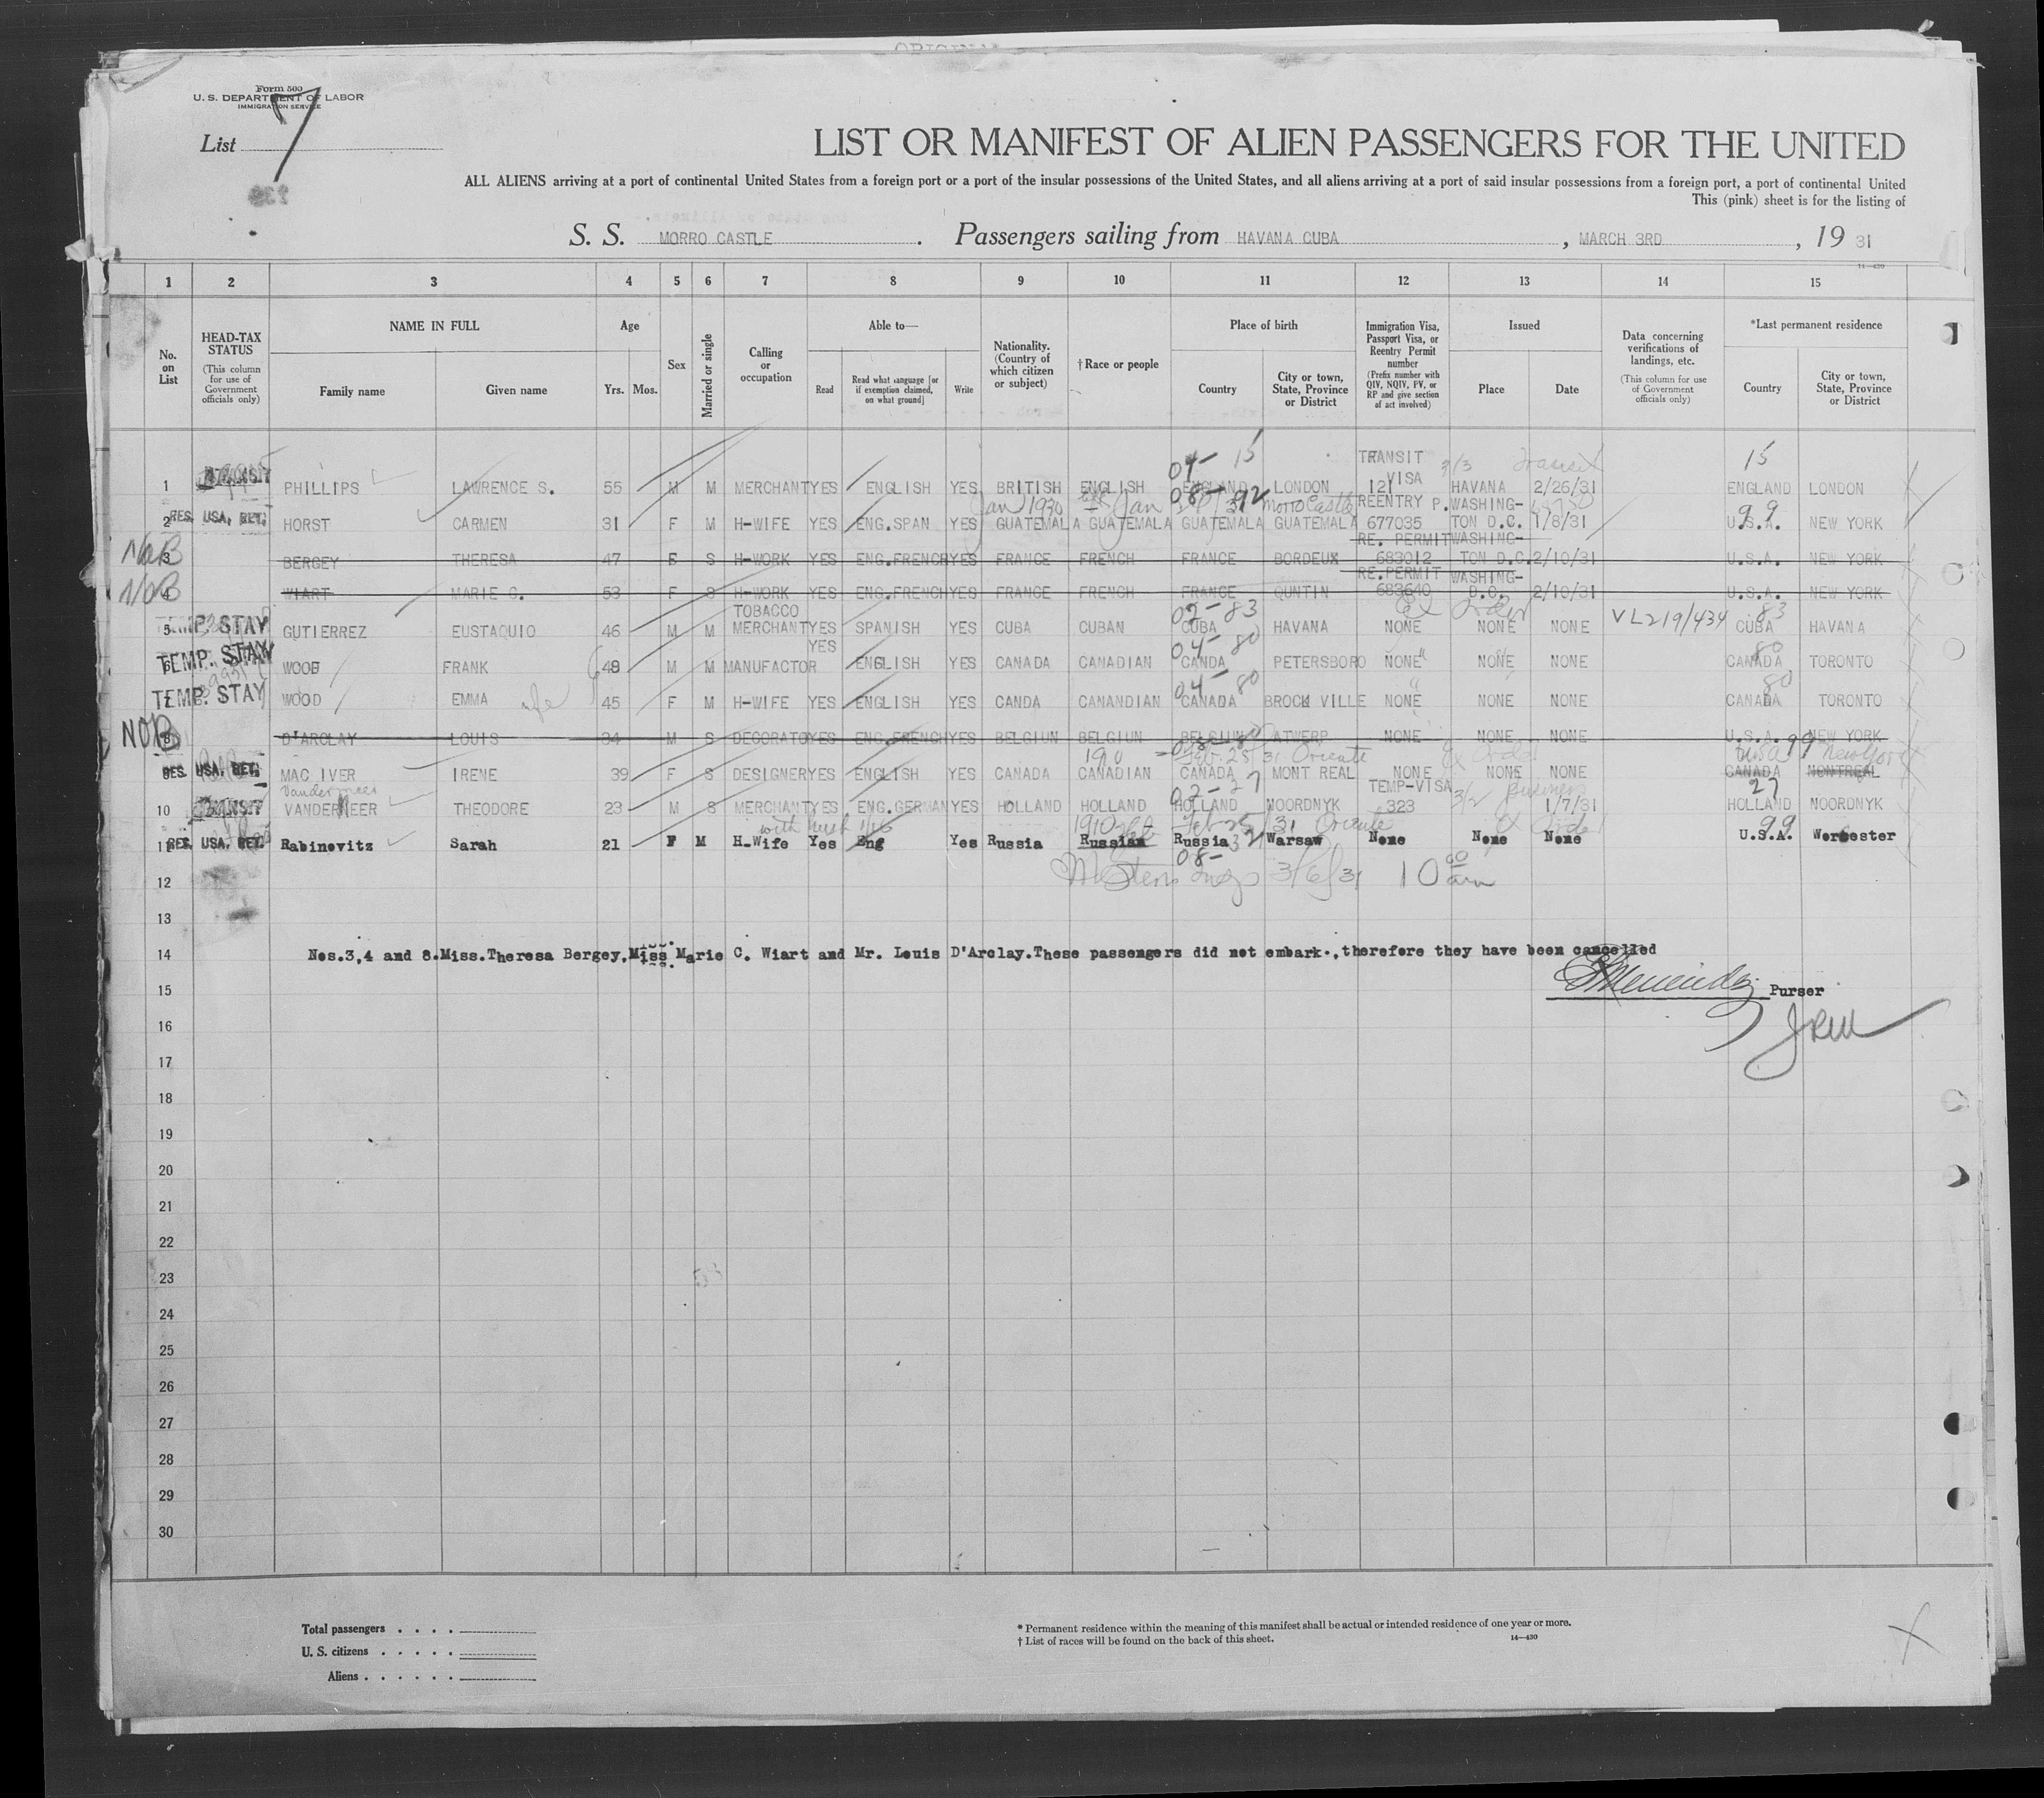 Form 500
U. S. DEPARTMENT OF LABOR
IMMIGRATION SERVICE
List 7
LIST OR MANIFEST OF ALIEN PASSENGERS FOR THE UNITED
ALL ALIENS arriving at a port of continental United States from a foreign port or a port of the insular possessions of the United States, and all aliens arriving at a port of said insular possessions from a foreign port, a port of continental United
This (pink) sheet is for the listing of
S. S. MORRO CASTLE . Passengers sailing from HAVANA CUBA , MARCH 3RD , 19 31
14—430
1 2 3 4 5 6 7 8 9 10 11 12 13 14 15
No. on List
HEAD-TAX STATUS (This column for use of Government officials only)
NAME IN FULL Family name Given name
Age Yrs. Mos.
Sex
Married or single
Calling or occupation
Able to— Read Read what language [or if exemption claimed, on what ground] Write
Nationality. (Country of which citizen or subject)
†Race or people
Place of birth Country City or town, State, Province or District
Immigration Visa, Passport Visa, or Reentry Permit number (Prefix number with QIV, NQIV, PV, or RP and give section of act involved)
Issued Place Date
Data concerning verifications of landings, etc. (This column for use of Government officials only)
*Last permanent residence Country City or town, State, Province or District
04- 15 TRANSIT VISA 3/3 Transit 15
1 TRANSIT PHILLIPS LAWRENCE S. 55 M M MERCHANT YES ENGLISH YES BRITISH ENGLISH ENGLAND LONDON 121 HAVANA 2/26/31 ENGLAND LONDON
Jan 1930 Jan 08- 92 Morro Castle REENTRY P. WASHING- 99
2 RES. USA, RET. HORST CARMEN 31 F M H-WIFE YES ENG.SPAN YES GUATEMALA GUATEMALA GUATEMALA GUATEMALA 677035 TON D.C. 1/8/31 U.S.A. NEW YORK
RE. PERMIT WASHING-
NOB 3 BERGEY THERESA 47 F S H-WORK YES ENG.FRENCH YES FRANCE FRENCH FRANCE BORDEUX 683012 TON D.C. 2/10/31 U.S.A. NEW YORK
RE.PERMIT WASHING-
NOB 4 WIART MARIE C. 53 F S H-WORK YES ENG.FRENCH YES FRANCE FRENCH FRANCE QUNTIN 683640 D.C. 2/10/31 U.S.A. NEW YORK
TOBACCO 02- 83 Ex Order 83
5 TEMP. STAY GUTIERREZ EUSTAQUIO 46 M M MERCHANT YES SPANISH YES CUBA CUBAN CUBA HAVANA NONE NONE NONE VL219/434 CUBA HAVANA
YES 04- 80 80
6 TEMP. STAY WOOD FRANK 48 M M MANUFACTOR ENGLISH YES CANADA CANADIAN CANDA PETERSBORO NONE NONE NONE CANADA TORONTO
04- 80 80
7 TEMP. STAY WOOD EMMA wife 45 F M H-WIFE YES ENGLISH YES CANDA CANANDIAN CANADA BROCK VILLE NONE NONE NONE CANADA TORONTO
NOB 8 D'ARCLAY LOUIS 34 M S DECORATO YES ENG.FRENCH YES BELGIUN BELGIUN BELGIUN ATWERP NONE NONE NONE U.S.A. NEW YORK
1910 Feb 25/31 Oriente Ex Order USA 99 New York
9 RES. USA, RET. MAC IVER IRENE 39 F S DESIGNER YES ENGLISH YES CANADA CANADIAN CANADA MONT REAL NONE NONE NONE CANADA MONTREAL
Vandermeer 02-27 TEMP-VISA 3/2 Business 27
10 TRANSIT VANDERMEER THEODORE 23 M S MERCHANT YES ENG.GERMAN YES HOLLAND HOLLAND HOLLAND NOORDNYK 323 1/7/31 HOLLAND NOORDNYK
with husb 1910 Feb 25/31 Oriente Ex Order 99
11 RES. USA, RET. Rabinovitz Sarah 21 F M H-Wife Yes Eng Yes Russia Russian Russia 32 Warsaw None None None U.S.A. Worcester
08-
12 3/6/31 10 00 am
13
14 Nos.3,4 and 8.Miss.Theresa Bergey,Miss Marie C. Wiart and Mr. Louis D'Arclay.These passengers did not embark.,therefore they have been cancelled
15 Purser
16
17
18
19
20
21
22
23
24
25
26
27
28
29
30
Total passengers . . . .
U. S. citizens . . . . .
Aliens . . . . . .
* Permanent residence within the meaning of this manifest shall be actual or intended residence of one year or more.
† List of races will be found on the back of this sheet.
14—430